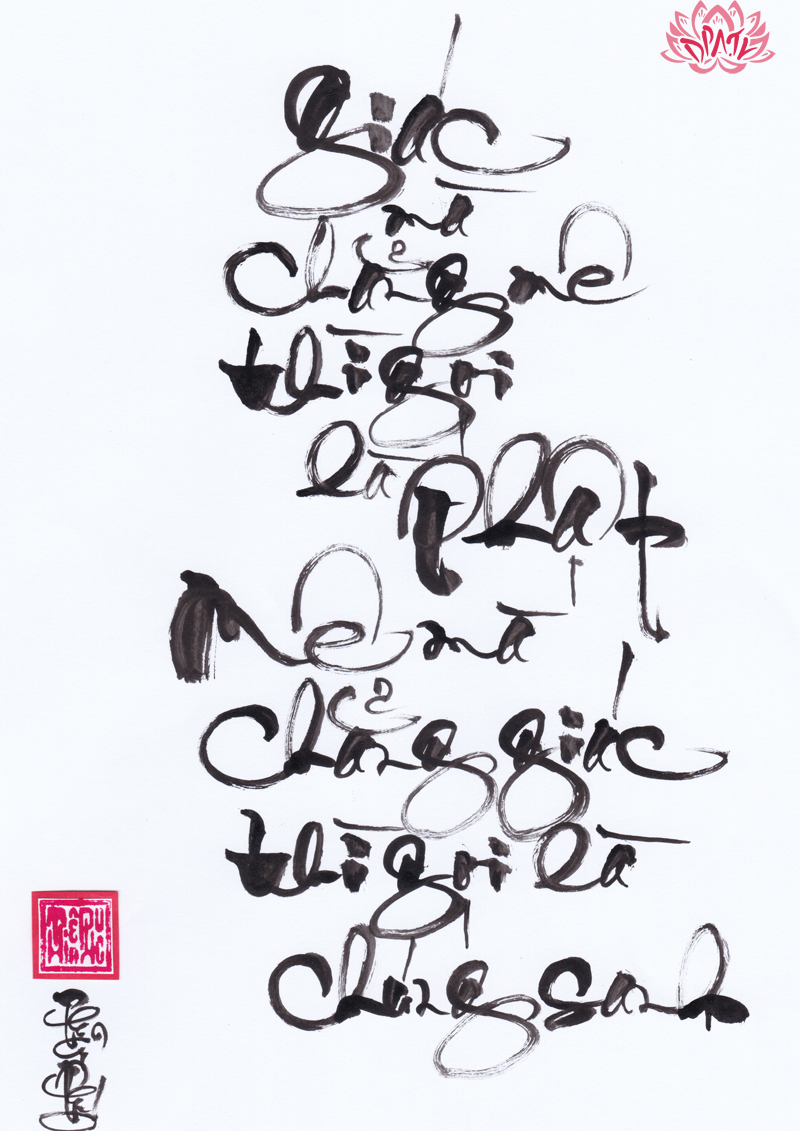 ĐPATV
Giác
mà
chẳng mê
thì gọi
là Phật
Mê mà
chẳng giác
thì gọi là
chúng sanh